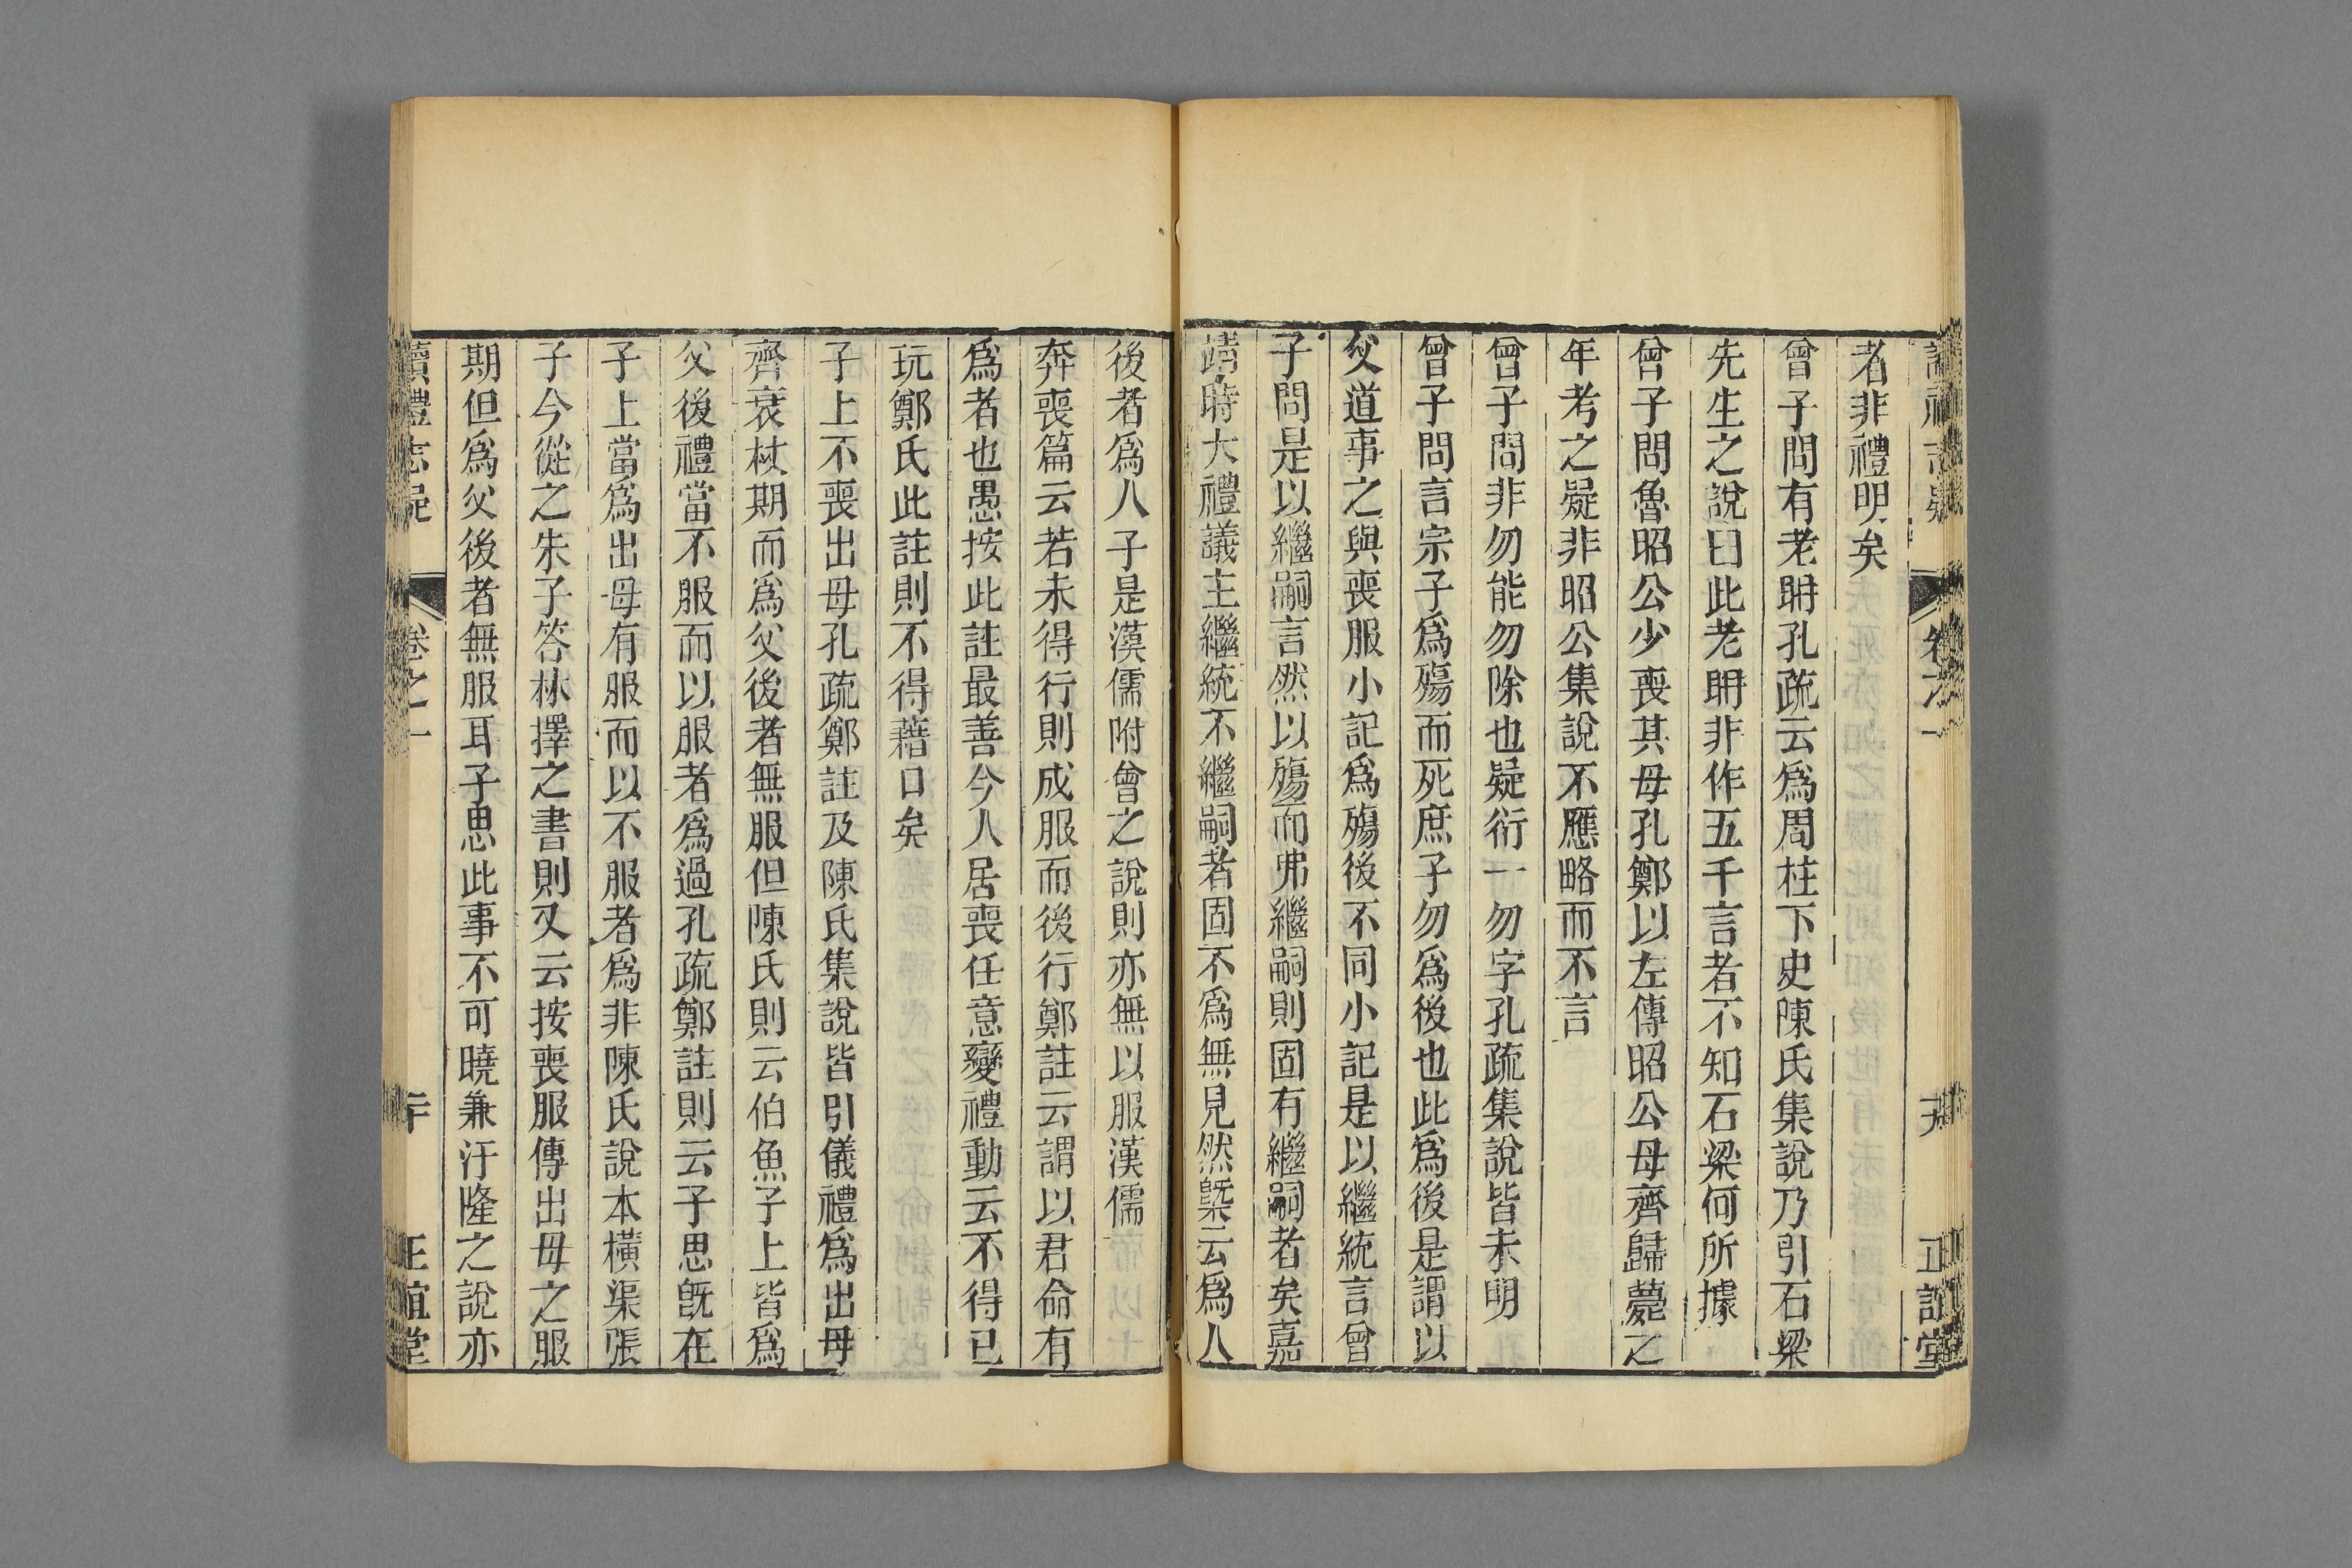 讀禮志疑 卷之一 正誼堂
者非禮明矣
曾子問有老聃孔疏云爲周柱下史陳氏集說乃引石梁
先生之說曰此老聃非作五千言者不知石梁何所據
曾子問魯昭公少喪其母孔鄭以左傳昭公母齊歸薨之
年考之疑非昭公集說不應略而不言
曾子問非勿能勿除也疑衍一勿字孔疏集說皆未明
曾子問言宗子爲殤而死庶子勿爲後也此爲後是謂以
父道事之與喪服小記爲殤後不同小記是以繼統言曾
子問是以繼嗣言然以殤而弗繼嗣則固有繼嗣者矣嘉
靖時大禮議主繼統不繼嗣者固不爲無見然旣云爲人
後者爲人子是漢儒附會之說則亦無以服漢儒
奔喪篇云若未得行則成服而後行鄭註云謂以君命有
爲者也愚按此註最善今人居喪任意變禮動云不得已
玩鄭氏此註則不得藉口矣
子上不喪出母孔疏鄭註及陳氏集說皆引儀禮爲出母
齊衰杖期而爲父後者無服但陳氏則云伯魚子上皆爲
父後禮當不服而以服者爲過孔疏鄭註則云子思旣在
子上當爲出母有服而以不服者爲非陳氏說本橫渠張
子今從之朱子答林擇之書則又云按喪服傳出母之服
期但爲父後者無服耳子思此事不可曉兼汙隆之說亦
讀禮志疑 卷之一 二十 正誼堂